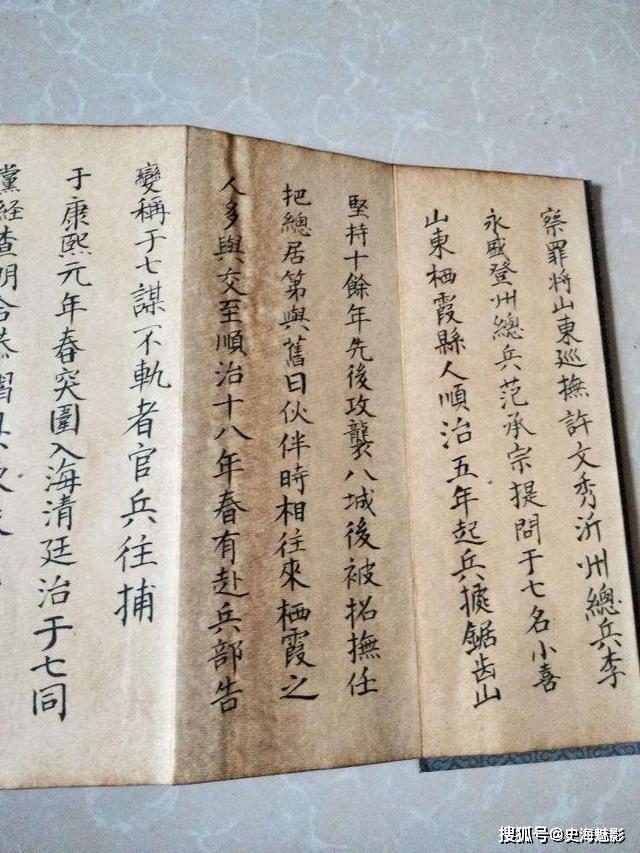 察罪将山東巡撫許文秀沂州總兵李
永盛登州總兵范承宗提問于七名小喜
山東栖霞縣人順治五年起兵據鋸齿山
堅持十餘年先後攻襲八城後被招撫任
把總居第與舊日伙伴時相往來栖霞之
人多與交至順治十八年春有赴兵部告
變稱于七謀不軌者官兵往捕
于康熙元年春突圍入海清廷治于七同
黨经查明
搜狐号@史海魅影